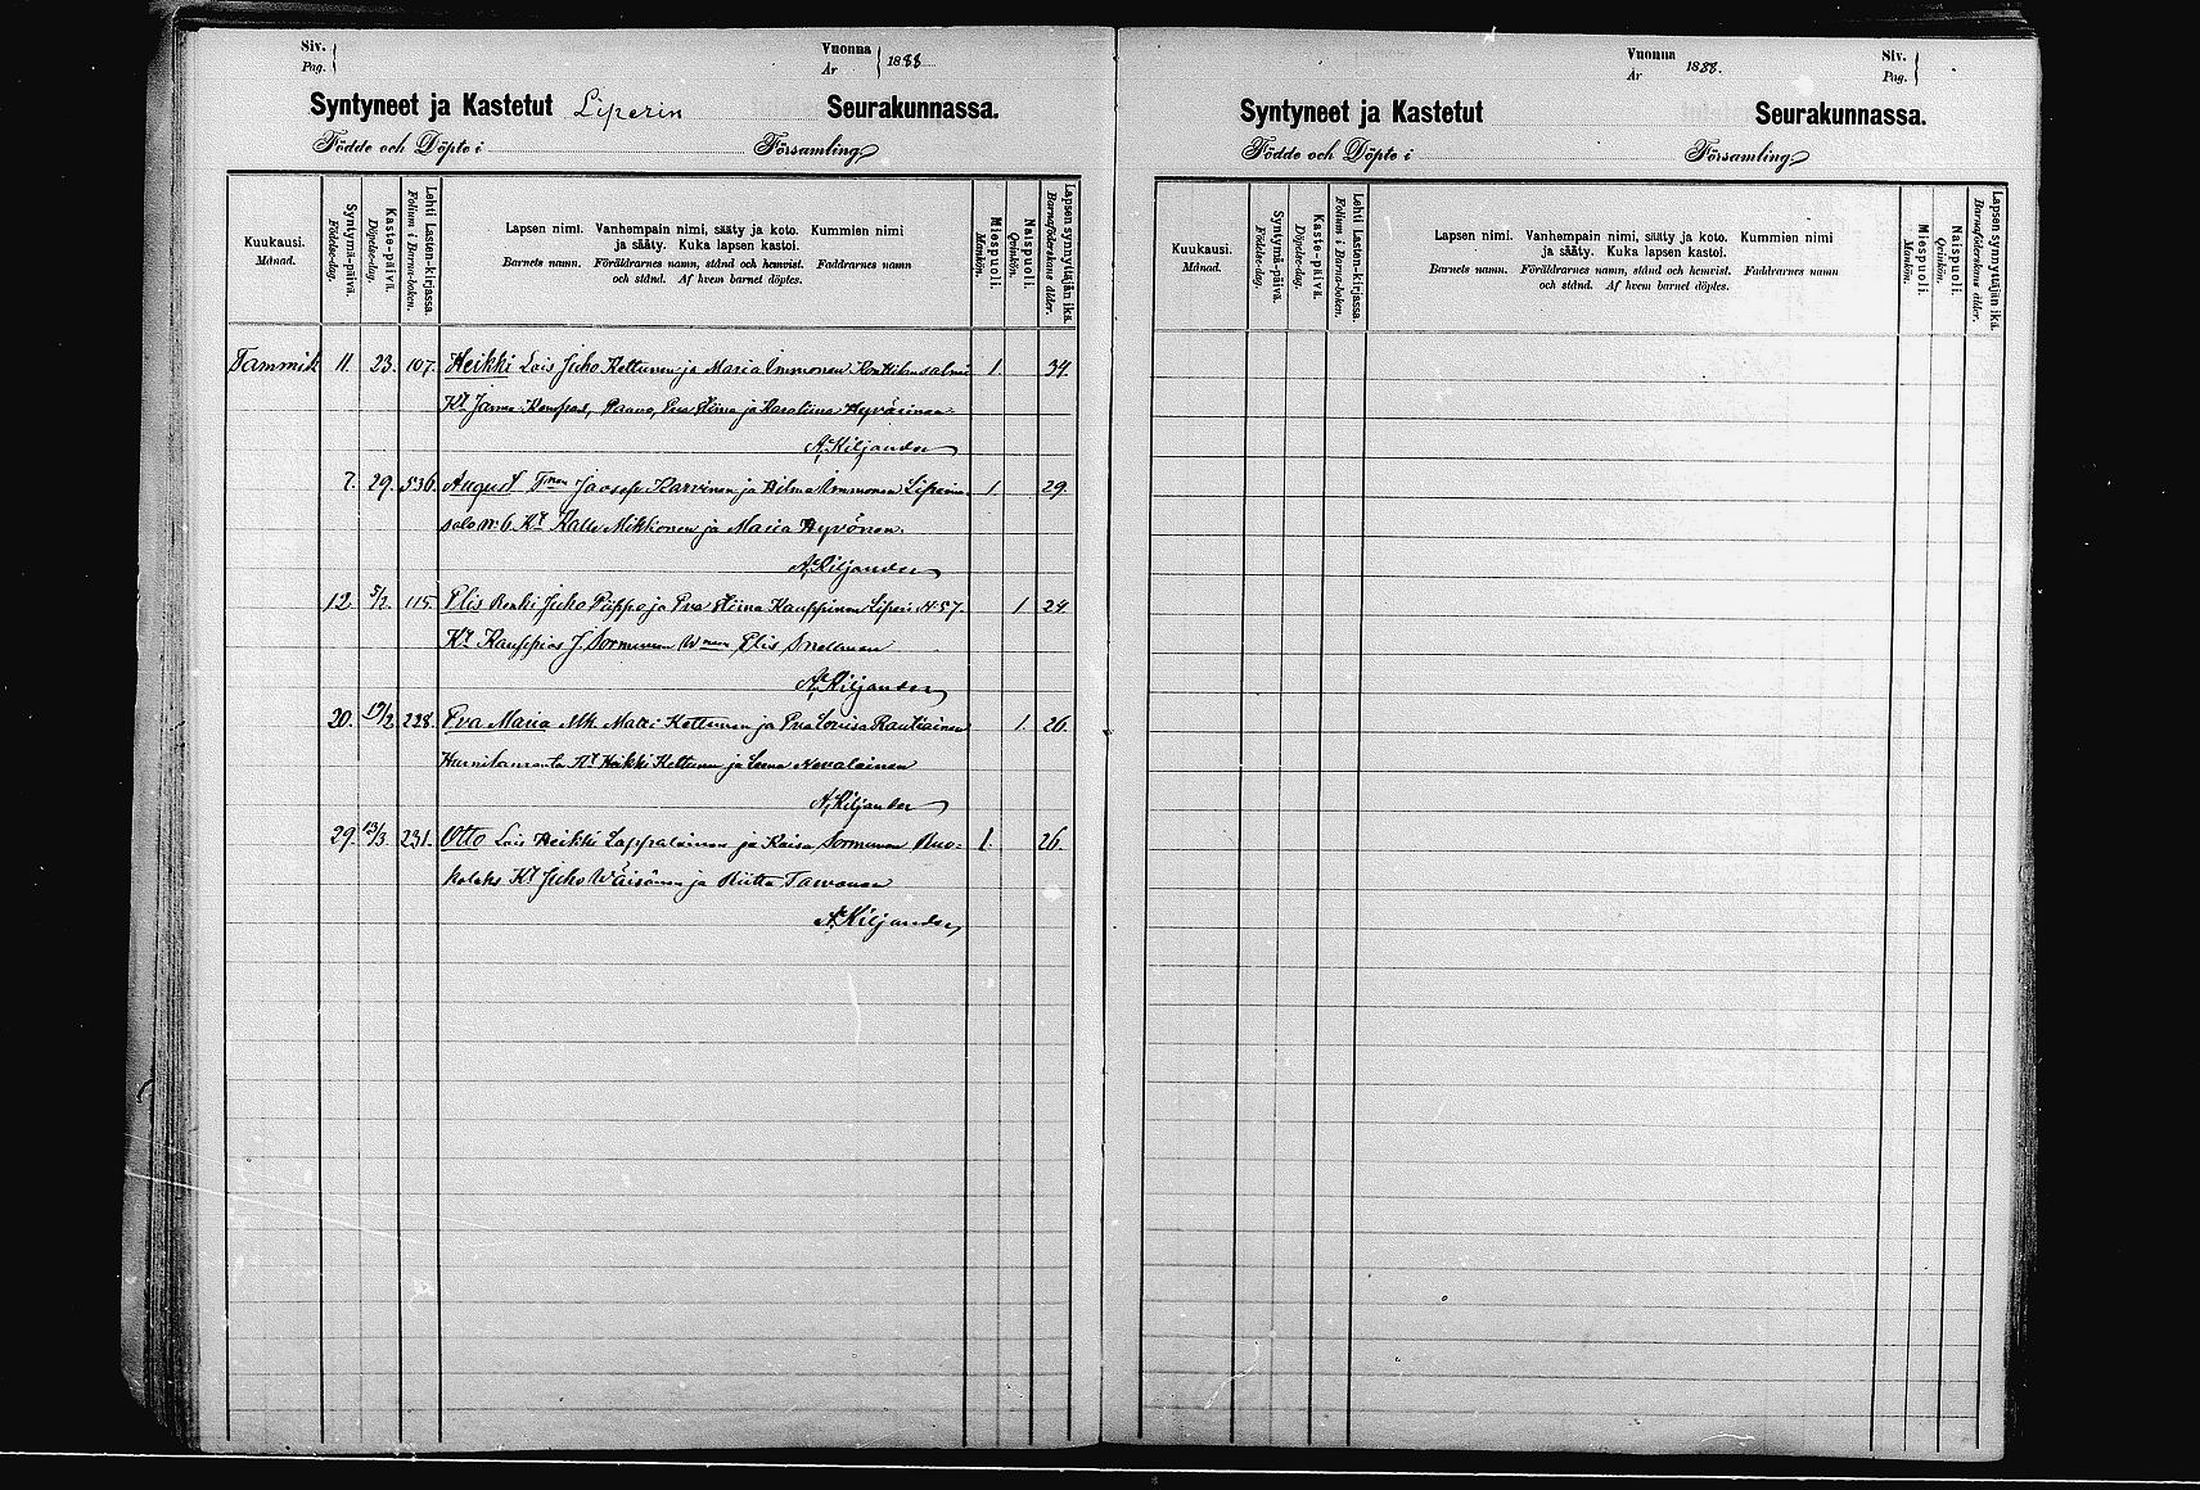 Siv.
Pag.
Vuonna
År
1888
Syntyneet ja Kastetut Liperin Seurakunnassa.
Födde och Döpte i Församling
Kuukausi.
Månad.
Syntymä-päivä.
Födelse-dag.
Kaste-päivä.
Döpelse-dag.
Lehti Lasten-kirjassa.
Folium i Barna-boken.
Lapsen nimi. Vanhempain nimi, sääty ja koto. Kummien nimi
ja sääty. Kuka lapsen kastoi.
Barnets namn. Föräldrarnes namn, stånd och hemvist. Faddrarnes namn
och stånd. Af hvem barnet döptes.
Miespuoli.
Mankön.
Naispuoli.
Qvinkön.
Lapsen synnyttäjän ikä.
Barnaföderskans ålder.
Tammik 11. 23. 107. Heikki Lois Juho Kettunen ja Maria Immonen 1. 34.
Kt Paavo, Eva Stiina ja Karoliina Hyvärinen
A. Kiljander
7. 29. 536. August Jooseph Karvinen ja Hilma Immonen 1. 29.
salo No 6 Kt Kalle Mikkonen ja Maria Hyvönen.
A. Kiljander
12. 5/2. 115. Elis Renki Juho Piippo ja Eva Stiina Kauppinen Liperi N:57. 1 24.
Kt Kauppias J. Sormunen Elis Snellman
A. Kiljander
20. 19/2. 228. Eva Maria Mk. Matti Kettunen ja Eva Lovisa Rautiainen 1. 26.
Kt Heikki Kettunen ja Leena Nevalainen
A. Kiljander
29. 13/3. 231. Otto Lois Heikki Lappalainen ja Kaisa Sormunen Ruo= 1. 26.
Kt Juho Wäisänen ja Riitta
A. Kiljander
Vuonna
År
1888.
Siv.
Pag.
Syntyneet ja Kastetut Seurakunnassa.
Födde och Döpte i Församling
Kuukausi.
Månad.
Syntymä-päivä.
Födelse-dag.
Kaste-päivä.
Döpelse-dag.
Lehti Lasten-kirjassa.
Folium i Barna-boken.
Lapsen nimi. Vanhempain nimi, sääty ja koto. Kummien nimi
ja sääty. Kuka lapsen kastoi.
Barnets namn. Föräldrarnes namn, stånd och hemvist. Faddrarnes namn
och stånd. Af hvem barnet döptes.
Miespuoli.
Mankön.
Naispuoli.
Qvinkön.
Lapsen synnyttäjän ikä.
Barnaföderskans ålder.